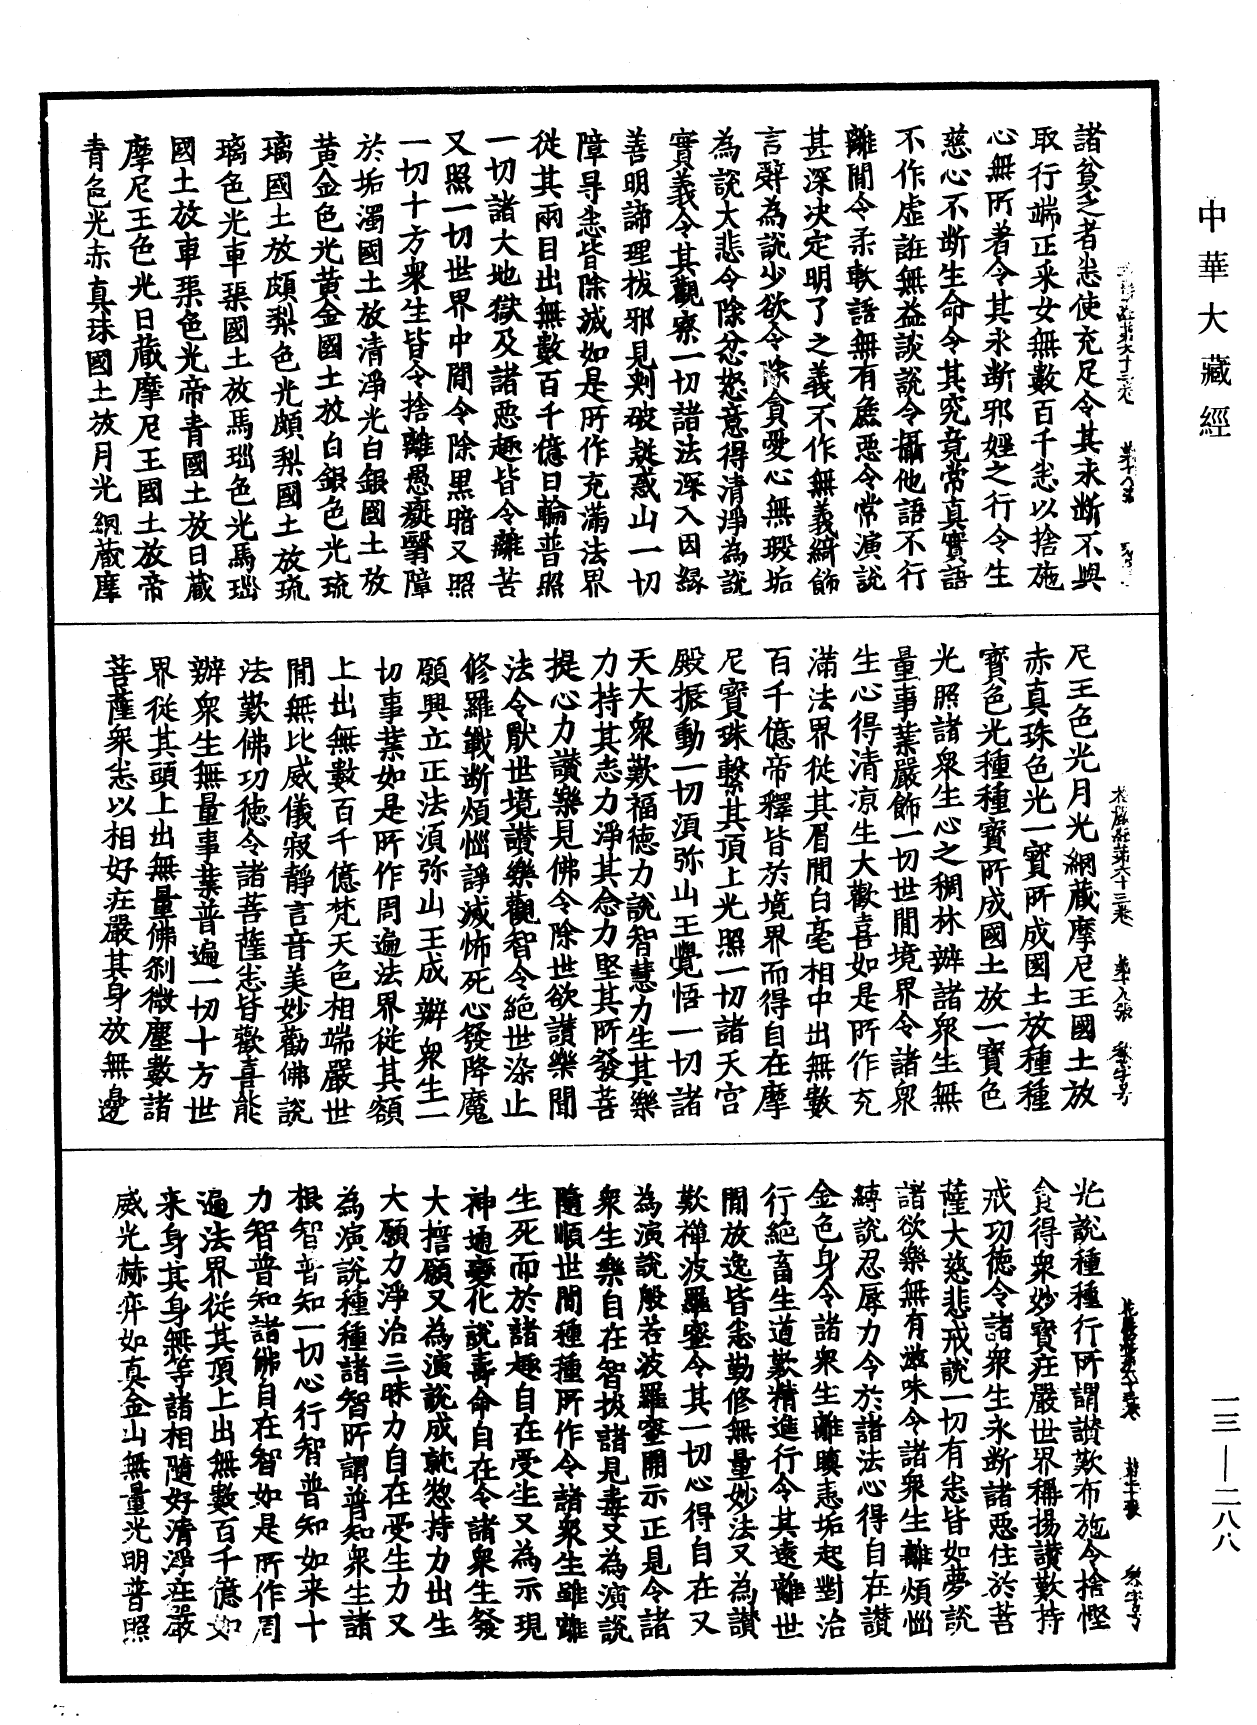 中華大藏經
諸貧乏者悉使充足令其永斷不與
取行端正采女無數百千悉以捨施
心無所著令其永斷邪婬之行令生
慈心不斷生命令其究竟常真實語
不作虛誑無益談說令攝他語不行
離間令柔軟語無有麁惡令常演說
甚深決定明了之義不作無義綺飾
言辭為說少欲令除貪愛心無瑕垢
為說大悲令除忿怒意得清淨為說
實義令其觀察一切諸法深入因緣
善明諦理拔邪見刺破疑惑山一切
障㝵悉皆除滅如是所作充滿法界
從其兩目出無數百千億日輪普照
一切諸大地獄及諸惡趣皆令離苦
又照一切世界中間令除黑暗又照
一切十方衆生皆令捨離愚癡翳障
於垢濁國土放清淨光白銀國土放
黃金色光黃金國土放白銀色光琉
璃國土放頗梨色光頗梨國土放琉
璃色光車𤦲國土放馬瑙色光馬瑙
國土放車𤦲色光帝青國土放日藏
摩尼王色光日藏摩尼王國土放帝
青色光赤真珠國土放月光網藏摩
尼王色光月光網藏摩尼王國土放
赤真珠色光一寶所成國土放種種
寶色光種種寶所成國土放一寶色
光照諸衆生心之稠林辦諸衆生無
量事業嚴飾一切世間境界令諸衆
生心得清涼生大歡喜如是所作充
滿法界從其眉間白毫相中出無數
百千億帝釋皆於境界而得自在摩
尼寶珠繫其頂上光照一切諸天宮
殿振動一切須彌山王覺悟一切諸
天大衆歎福德力說智慧力生其樂
力持其志力淨其念力堅其所發菩
提心力讚樂見佛令除世欲讚樂聞
法令厭世境讚樂觀智令絕世染止
修羅戰斷煩惱諍滅怖死心發降魔
願興立正法須弥山王成辦衆生一
切事業如是所作周遍法界從其額
上出無數百千億梵天色相端嚴世
間無比威儀寂靜言音美妙勸佛說
法歎佛功德令諸菩薩悉皆歡喜能
辦衆生無量事業普遍一切十方世
界從其頭上出無量佛剎微塵數諸
菩薩衆悉以相好莊嚴其身放無邊
光說種種行所謂讚歎布施令捨慳
貪得衆妙寶莊嚴世界稱揚讚歎持
戒功德令諸衆生永斷諸惡住於菩
薩大慈悲戒說一切有悉皆如夢說
諸欲樂無有滋味令諸衆生離煩惱
縛說忍辱力令於諸法心得自在讚
金色身令諸衆生離瞋恚垢起對治
行絕畜生道歎精進行令其遠離世
間放逸皆悉勤修無量妙法又為讚
歎禪波羅蜜令其一切心得自在又
為演說般若波羅蜜開示正見令諸
衆生樂自在智拔諸見毒又為演說
隨順世間種種所作令諸衆生雖離
生死而於諸趣自在受生又為示現
神通變化說壽命自在令諸衆生發
大誓願又為演說成就惣持力出生
大願力淨治三昧力自在受生力又
為演說種種諸智所謂普知衆生諸
根智普知一切心行智普知如來十
力智普知諸佛自在智如是所作周
遍法界從其頂上出無數百千億如
来身其身無等諸相隨好清淨莊嚴
威光赫弈如真金山無量光明普照
一三—二八八